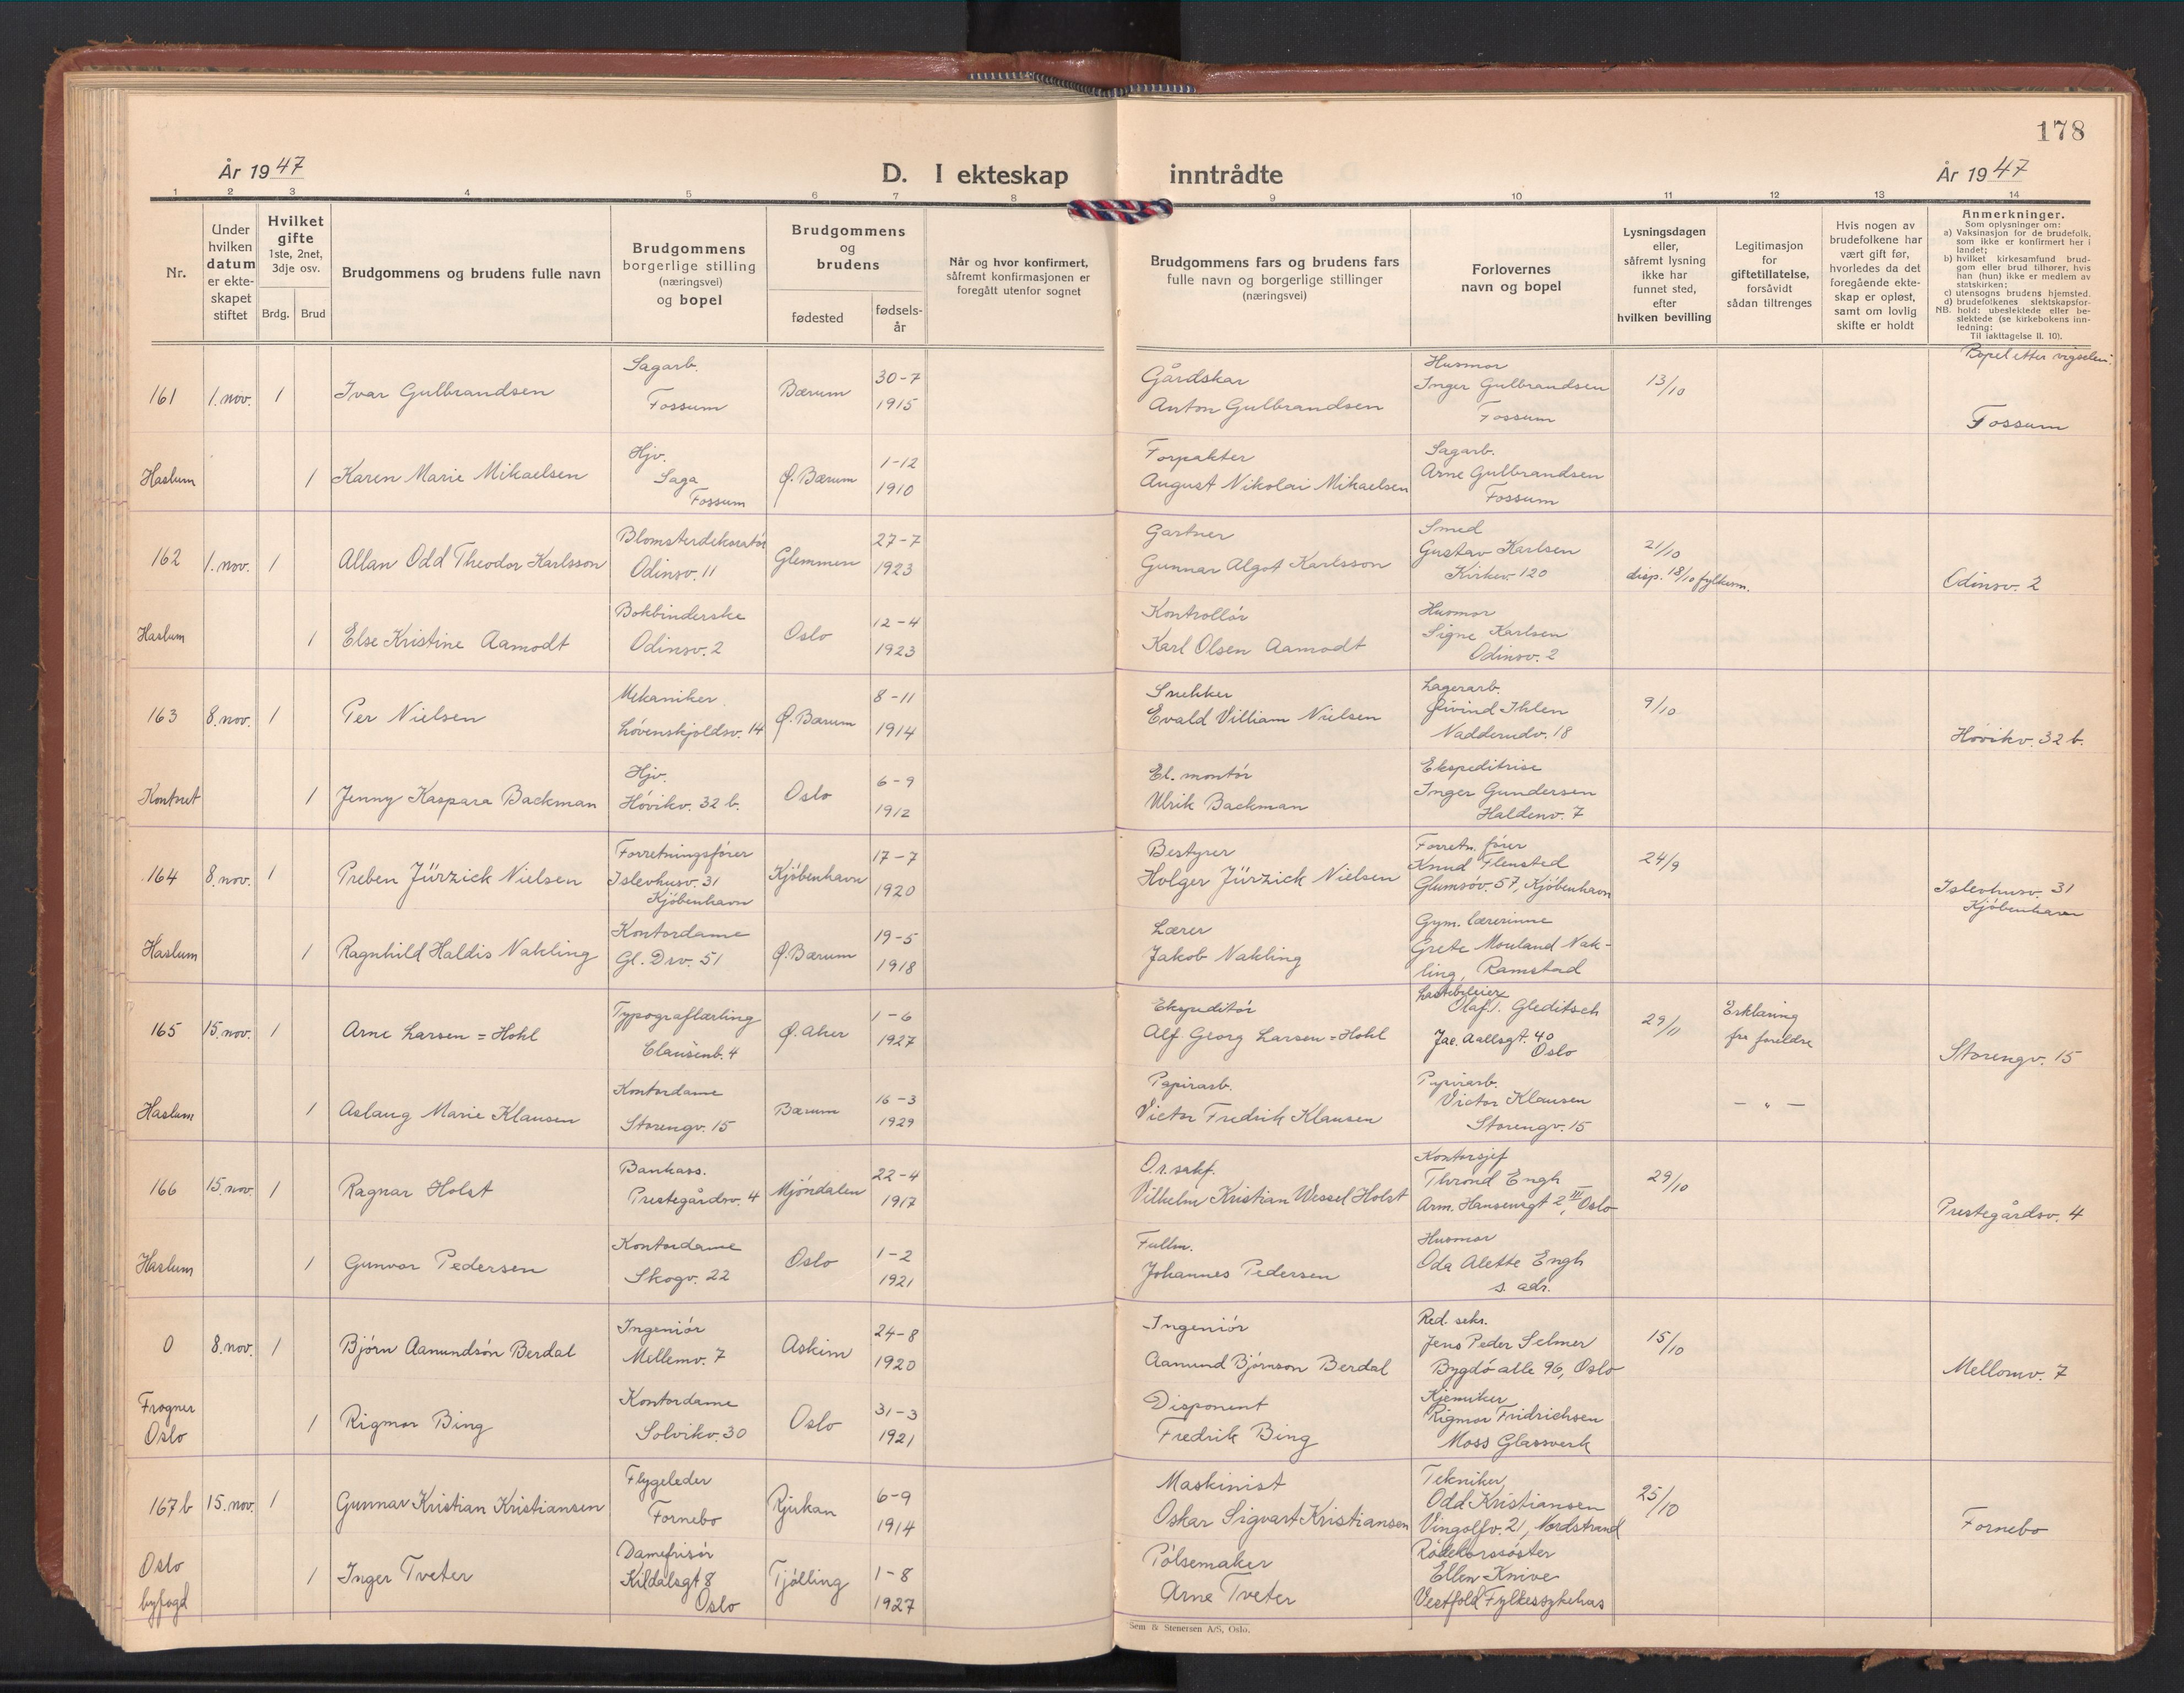 178
År 1947
D. I ekteskap inntrådte
År 1947
1 2 3 4 5 6 7 8 9 10 11 12 13 14
Nr.
Under hvilken datum er ekte-skapet stiftet
Hvilket gifte 1ste, 2net, 3dje osv.
Brdg. Brud
Brudgommens og brudens fulle navn
Brudgommens borgerlige stilling (næringsvei) og bopel
Brudgommens og brudens
fødested
fødsels-år
Når og hvor konfirmert, såfremt konfirmasjonen er foregått utenfor sognet
Brudgommens fars og brudens fars fulle navn og borgerlige stillinger (næringsvei)
Forlovernes navn og bopel
Lysningsdagen eller, såfremt lysning ikke har funnet sted, efter hvilken bevilling
Legitimasjon for giftetillatelse, forsåvidt sådan tiltrenges
Hvis nogen av brudefolkene har vært gift før, hvorledes da det foregående ekte-skap er opløst, samt om lovlig skifte er holdt
Anmerkninger.
Som oplysninger om:
a) Vaksinasjon for de brudefolk, som ikke er konfirmert her i landet;
b) hvilket kirkesamfund brud-gom eller brud tilhører, hvis han (hun) ikke er medlem av statskirken;
c) utensogns brudens hjemsted.
d) brudefolkenes slektskapsfor-hold: ubeslektede eller be-slektede (se kirkebokens inn-ledning:
NB.
Til iakttagelse II. 10).
Bopel etter vigselen:
161 1. nov. 1 Ivar Gulbrandsen Sagarb. Fossum Bærum 30-7 1915 Gårdskar Anton Gulbrandsen Husmor Inger Gulbrandsen Fossum 13/10 Fossum
Haslum 1 Karen Marie Mikaelsen Hjv. Saga Fossum Ø. Bærum 1-12 1910 Forpakter August Nikolai Mikaelsen Sagarb. Arne Gulbrandsen Fossum
162 1. nov. 1 Allan Odd Theodor Karlsson Blomsterdekoratør Odinsv. 11 Glemmen 27-7 1923 Gartner Gunnar Algot Karlsson Smed Gustav Karlsen Kirkev. 120 21/10 disp. 18/10 fylkesm. Odinsv. 2
Haslum 1 Else Kristine Aamodt Bokbinderske Odinsv. 2 Oslo 12-4 1923 Kontrollør Karl Olsen Aamodt Husmor Signe Karlsen Odinsv. 2
163 8. nov. 1 Per Nielsen Mekaniker Løvenskjoldsv. 14 Ø. Bærum 8-11 1914 Snekker Evald Villiam Nielsen Lagerarb. Øivind Ihlen Nadderudv. 18 9/10 Høvikv. 32 b.
Kontret 1 Jenny Kaspara Backman Hjv. Høvikv. 32 b. Oslo 6-9 1912 El. montør Ulrik Backman Ekspeditrise Inger Gundersen Haldenv. 7
164 8. nov. 1 Preben Jürzick Nielsen Forretningsfører Islevhusv. 31 Kjøbenhavn Kjøbenhavn 17-7 1920 Bestyrer Holger Jürzick Nielsen Forretn. fører Knud Flensted Glumsøv. 57, Kjøbenhavn 24/9 Islevhusv. 31 Kjøbenhavn
Haslum 1 Ragnhild Haldis Nakling Kontordame Gl. Drv. 51 Ø. Bærum 19-5 1918 Lærer Jakob Nakling Gym. lærerinne Grete Mouland Nak-ling, Ramstad
165 15. nov. 1 Arne Larsen = Hohl Typograflærling Clausenb. 4 Ø. Aker 1-6 1927 Ekspeditør Alf Georg Larsen = Hohl Lastebileier Olaf I. Gleditsch Jac. Aallsgt. 40 Oslo 29/11 Erklæring fra foreldre Storengv. 15
Haslum 1 Aslaug Marie Klausen Kontordame Storengv. 15 Bærum 16-3 1929 Papirarb. Victor Fredrik Klausen Papirarb. Victor Klausen Storengv. 15 — " —
166 15. nov. 1 Ragnar Holst Bankass. Prestegårdsv. 4 Mjøndalen 22-4 1917 O.r.sakf. Vilhelm Kristian Wessel Holst Kontorsjef Thrond Engh Arm. Hansensgt 2 III, Oslo 29/10 Prestegårdsv. 4
Haslum 1 Gunvor Pedersen Kontordame Skogv. 22 Oslo 1-2 1921 Fullm. Johannes Pedersen Husmor Oda Alette Engh s. adr.
0 8. nov. 1 Bjørn Aamundsøn Berdal Ingeniør Mellemv. 7 Askim 24-8 1920 Ingeniør Aamund Bjørnson Berdal Red. sekr. Jens Peder Selmer Bygdø alle 96, Oslo 15/10 Mellomv. 7
Frogner Oslo 1 Rigmor Bing Kontordame Solvikv. 30 Oslo 31-3 1921 Disponent Fredrik Bing Kjemiker Rigmor Fridrichsen Moss Glassverk
167 b 15. nov. 1 Gunnar Kristian Kristiansen Flygeleder Fornebo Rjukan 6-9 1914 Maskinist Oskar Sigvart Kristiansen Tekniker Odd Kristiansen Vingolfv. 21, Nordstrand 25/10 Fornebo
Oslo byfogd 1 Inger Tveter Damefrisør Kildalsgt 8 Oslo Tjølling 1-8 1927 Pølsemaker Arne Tveter Rødekorssøster Ellen Knive Vestfold Fylkessykehus
Sem & Stenersen A/S, Oslo.